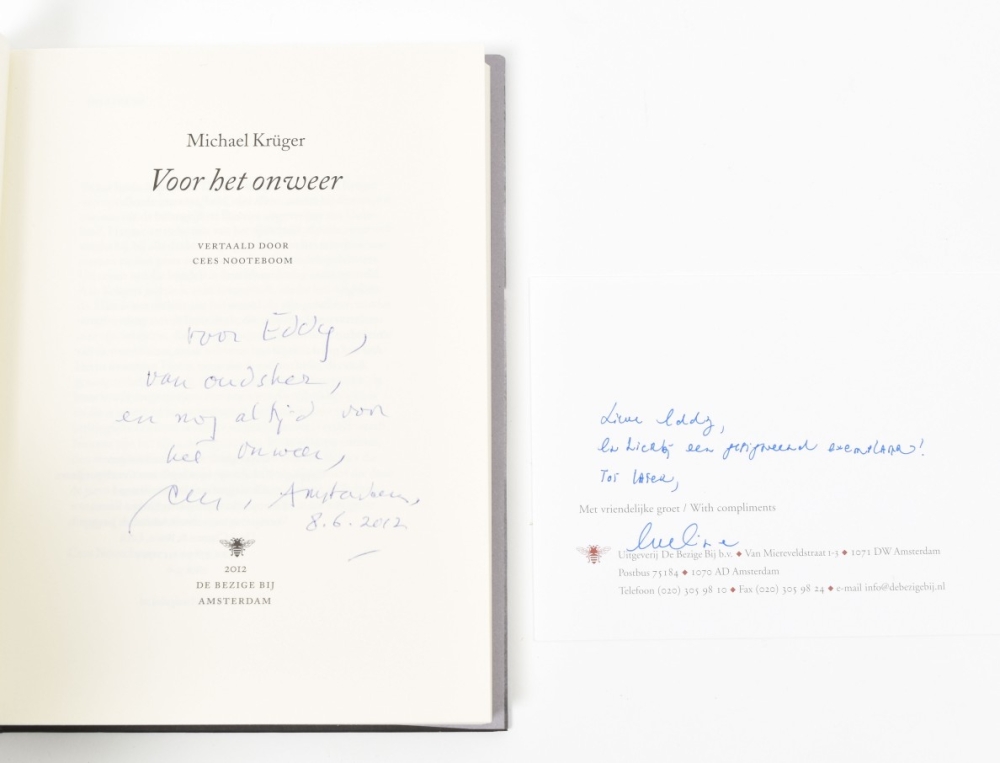 Michael Krüger
Voor het onweer
VERTAALD DOOR
CEES NOOTEBOOM
voor Eddy,
van oudsher,
en nog altijd voor
het onweer,
Cees, Amsterdam,
8.6.2012
2012
DE BEZIGE BIJ
AMSTERDAM
Lieve Eddy,
een gesigneerd exemplaar!
Tot later,
Met vriendelijke groet / With compliments
Uitgeverij De Bezige Bij b.v. ◆ Van Miereveldstraat 1-3 ◆ 1071 DW Amsterdam
Postbus 75184 ◆ 1070 AD Amsterdam
Telefoon (020) 305 98 10 ◆ Fax (020) 305 98 24 ◆ e-mail info@debezigebij.nl